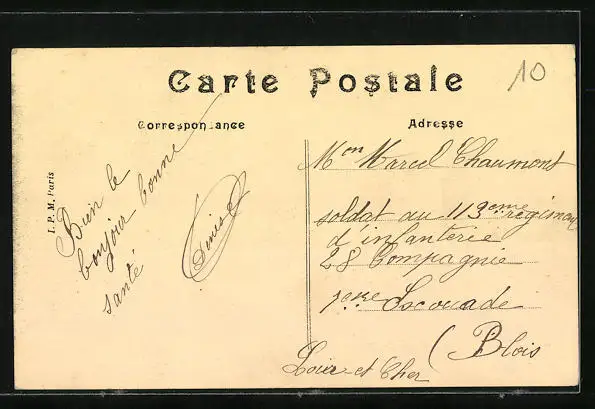 Carte Postale
10
Correspondance
Adresse
I. P. M. Paris
Bien le
bonjour bonne
santé
Denise
Mon Marcel Chaumont
soldat au 113eme régiment
d'infanterie
28 Compagnie
1ere Escouade
(Blois
Loir et Cher